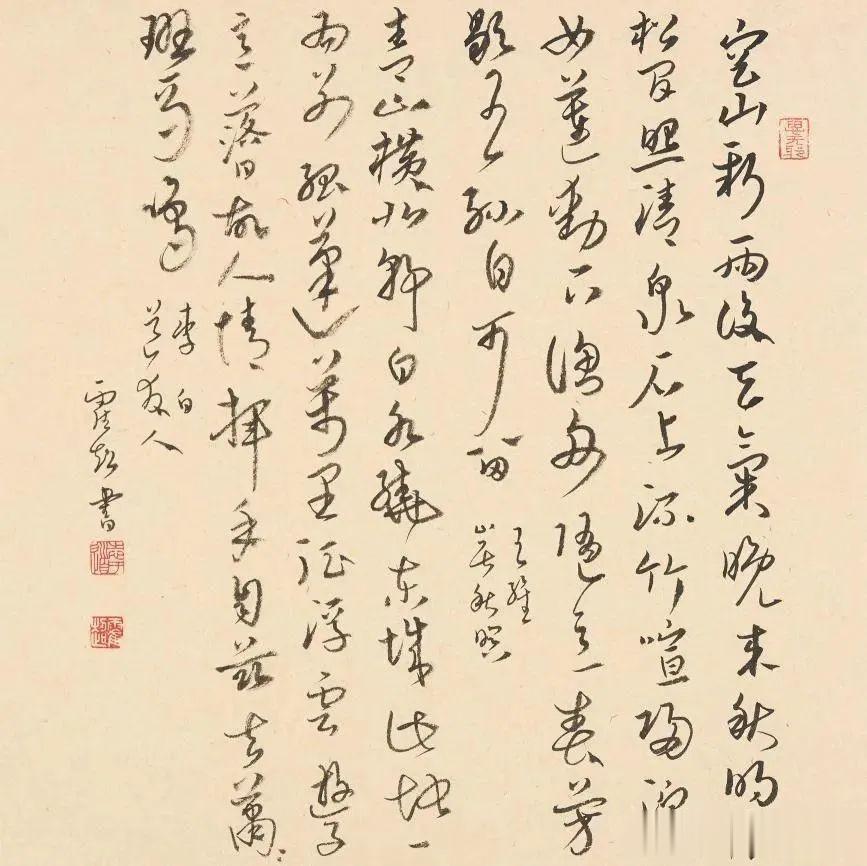 空山新雨後天氣晚来秋明
松間照清泉石上流竹喧歸浣
女蓮動下漁舟隨意春芳
歇王孫自可留
王維
山居秋暝
青山橫北郭白水繞東城此地一
為別孤蓬萬里征浮雲遊子
意落日故人情揮手自茲去蕭蕭
班馬鳴
李白
送友人
霍超書